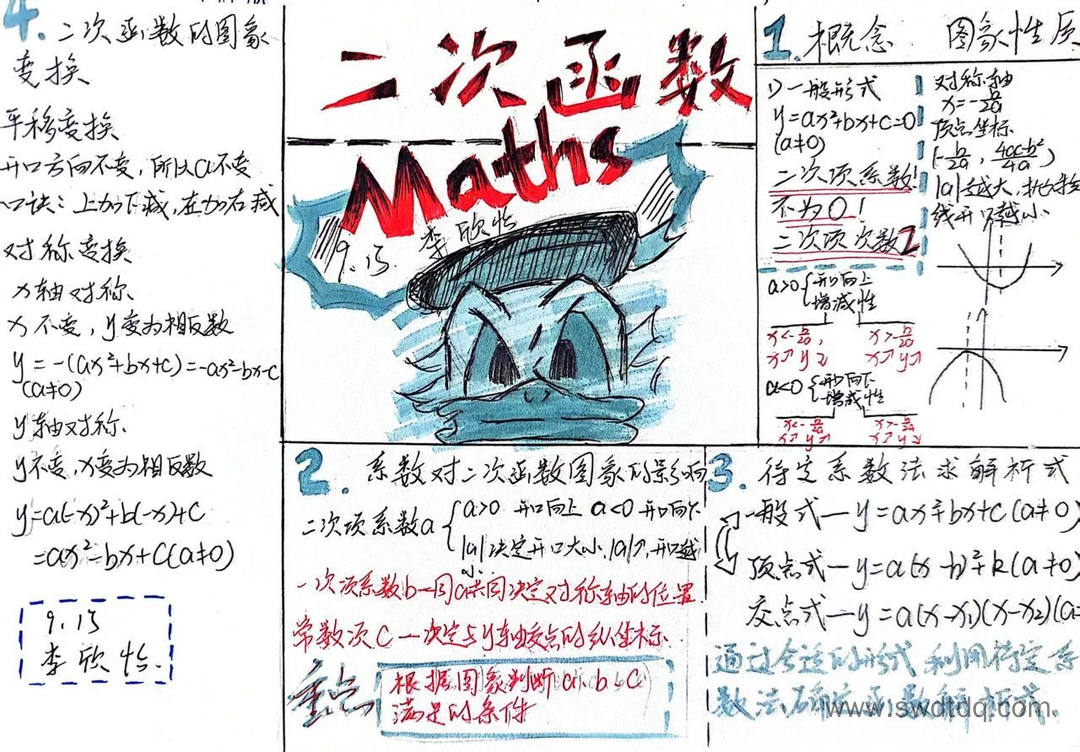 二次函数
Maths
9.15 李欣怡
1. 概念 图象性质
1) 一般形式
y=ax²+bx+c=0
(a≠0)
二次项系数
不为0!
二次项次数2
对称轴
x=-b/2a
顶点坐标
(-b/2a, 4ac-b²/4a)
|a|越大,抛物
线开口越小
a>0 { 开口向上
增减性
x<-b/2a, x>-b/2a
x↗y↘ x↗y↗
a<0 { 开口向下
增减性
x<-b/2a x>-b/2a
x↗y↗ x↗y↘
2. 系数对二次函数图象的影响
二次项系数a { a>0 开口向上 a<0 开口向下
|a|决定开口大小,|a|↗,开口越
小
一次项系数b—同a共同决定对称轴的位置
常数项C—决定与y轴交点的纵坐标
重点
根据图象判断a、b、c
满足的条件
3. 待定系数法求解析式
一般式—y=ax²+bx+c(a≠0)
顶点式—y=a(x-h)²+k(a≠0)
交点式—y=a(x-x1)(x-x2)(a
通过合适的形式 利用待定系
数法确定函数解析式.
www.swdtdq.com
4. 二次函数的图象
变换
平移变换
开口方向不变,所以a不变
口诀:上加下减,左加右减
对称变换
x轴对称.
x不变,y变为相反数
y=-(ax²+bx+c)=-ax²-bx-c
(a≠0)
y轴对称.
y不变,x变为相反数
y=a(-x)²+b(-x)+c
=ax²-bx+c(a≠0)
9.15
李欣怡.